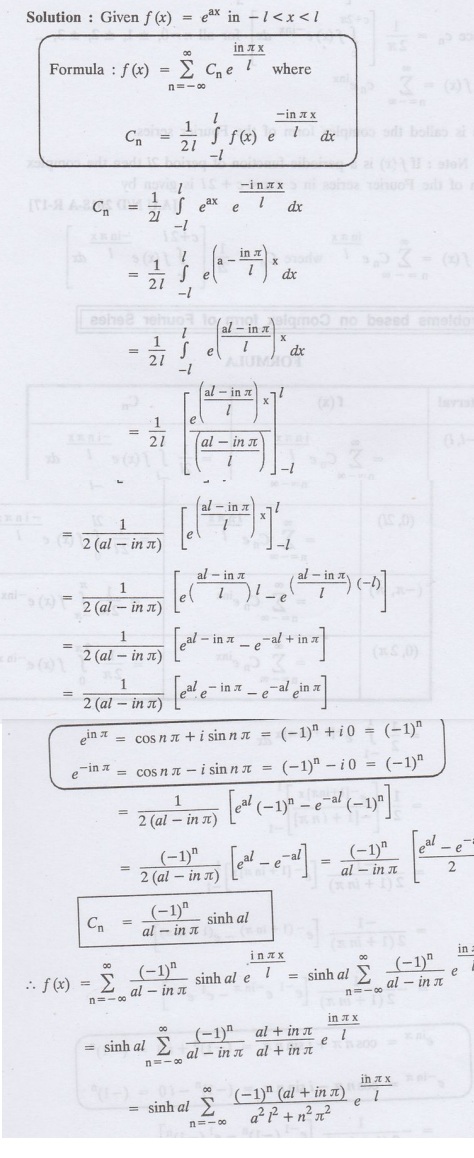 Solution : Given f (x) = e^{ax} in – l < x < l
Formula : f (x) = \sum_{n=-\infty}^{\infty} C_n e^{\frac{in\pi x}{l}} where
C_n = \frac{1}{2l} \int_{-l}^{l} f(x) e^{\frac{-in\pi x}{l}} dx
C_n = \frac{1}{2l} \int_{-l}^{l} e^{ax} e^{\frac{-in\pi x}{l}} dx
= \frac{1}{2l} \int_{-l}^{l} e^{\left(a - \frac{in\pi}{l}\right)x} dx
= \frac{1}{2l} \int_{-l}^{l} e^{\left(\frac{al - in\pi}{l}\right)x} dx
= \frac{1}{2l} \left[\frac{e^{\left(\frac{al - in\pi}{l}\right)x}}{\left(\frac{al - in\pi}{l}\right)}\right]_{-l}^{l}
= \frac{1}{2(al - in\pi)} \left[e^{\left(\frac{al - in\pi}{l}\right)x}\right]_{-l}^{l}
= \frac{1}{2(al - in\pi)} \left[e^{\left(\frac{al - in\pi}{l}\right)l} - e^{\left(\frac{al - in\pi}{l}\right)(-l)}\right]
= \frac{1}{2(al - in\pi)} \left[e^{al - in\pi} - e^{-al + in\pi}\right]
= \frac{1}{2(al - in\pi)} \left[e^{al} e^{-in\pi} - e^{-al} e^{in\pi}\right]
e^{in\pi} = cos nπ + i sin nπ = (–1)^n + i 0 = (–1)^n
e^{-in\pi} = cos nπ – i sin nπ = (–1)^n – i 0 = (–1)^n
= \frac{1}{2(al - in\pi)} \left[e^{al} (-1)^n - e^{-al} (-1)^n\right]
= \frac{(-1)^n}{2(al - in\pi)} \left[e^{al} - e^{-al}\right] = \frac{(-1)^n}{al - in\pi} [\frac{e^{al} - e^{-}}{2}
C_n = \frac{(-1)^n}{al - in\pi} sinh al
∴ f (x) = \sum_{n=-\infty}^{\infty} \frac{(-1)^n}{al - in\pi} sinh al e^{\frac{in\pi x}{l}} = sinh al \sum_{n=-\infty}^{\infty} \frac{(-1)^n}{al - in\pi} e^{\frac{in}{l}}
= sinh al \sum_{n=-\infty}^{\infty} \frac{(-1)^n}{al - in\pi} \frac{al + in\pi}{al + in\pi} e^{\frac{in\pi x}{l}}
= sinh al \sum_{n=-\infty}^{\infty} \frac{(-1)^n (al + in\pi)}{a^2 l^2 + n^2 \pi^2} e^{\frac{in\pi x}{l}}